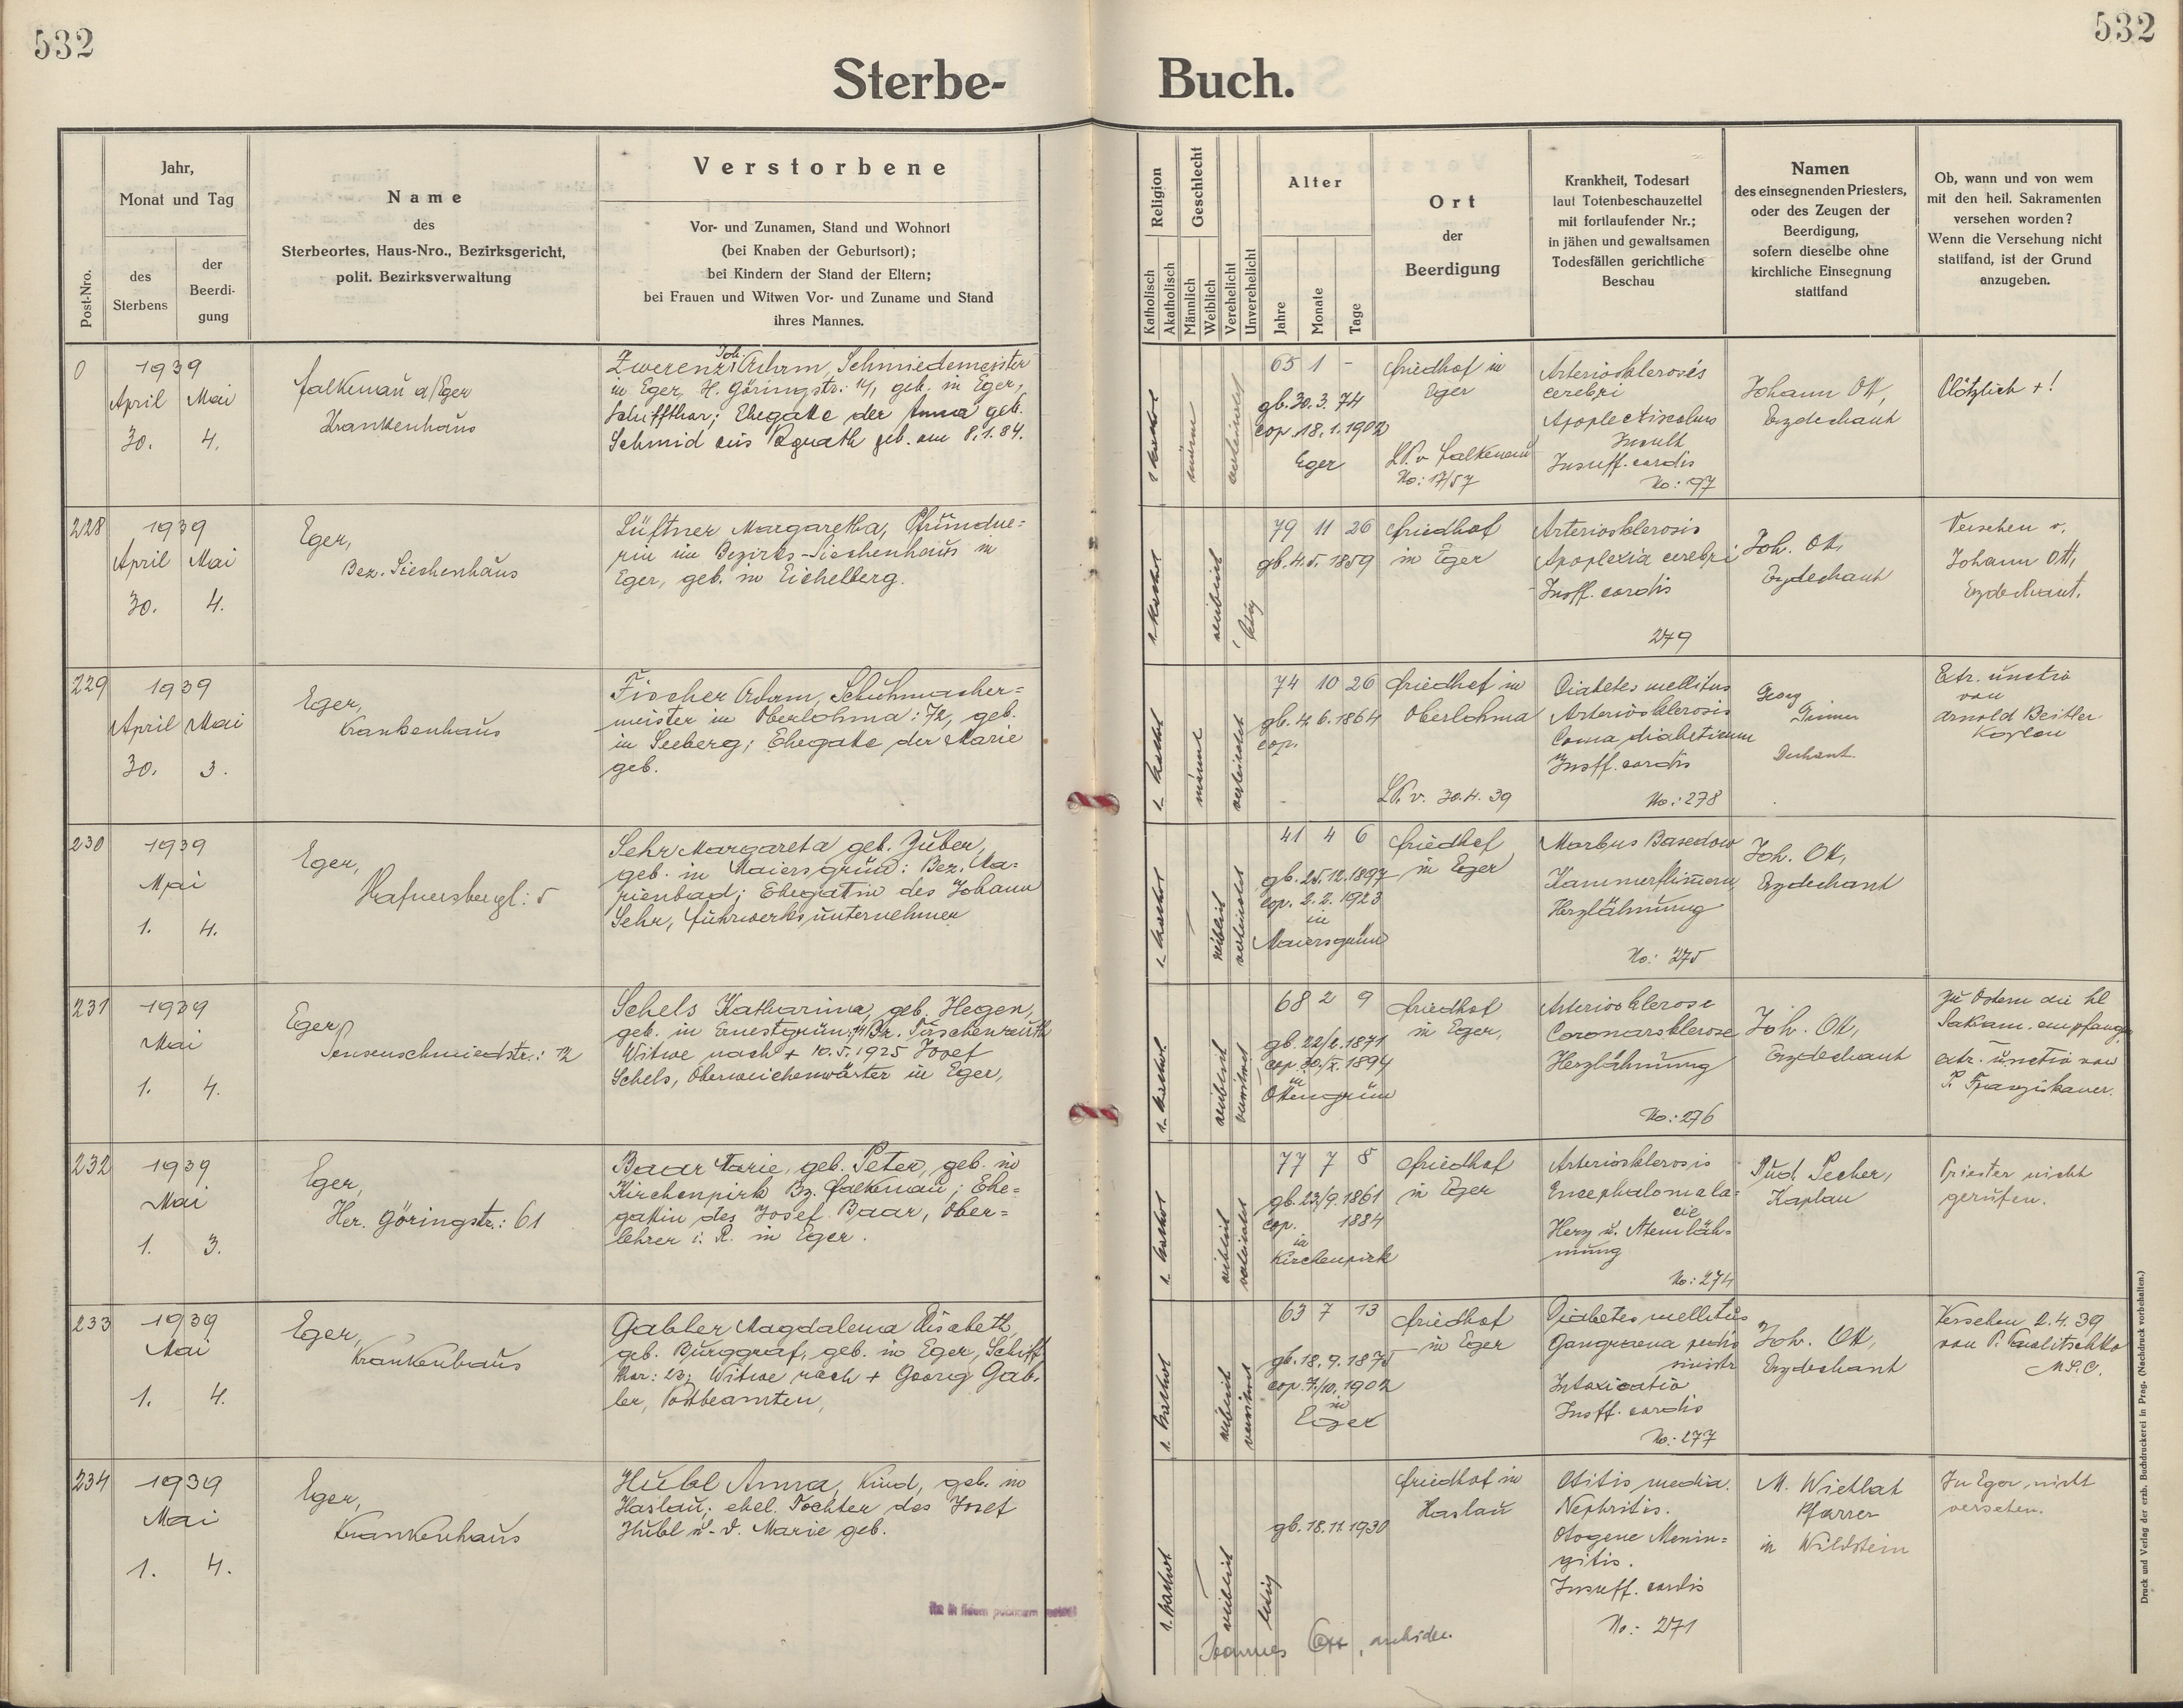 532
532
Sterbe- Buch.
Post-Nro.
Jahr,
Monat und Tag
des
Sterbens
der
Beerdi-
gung
Name
des
Sterbeortes, Haus-Nro., Bezirksgericht,
polit. Bezirksverwaltung
Verstorbene
Vor- und Zunamen, Stand und Wohnort
(bei Knaben der Geburtsort);
bei Kindern der Stand der Eltern;
bei Frauen und Witwen Vor- und Zuname und Stand
ihres Mannes.
Religion
Katholisch
Akatholisch
Geschlecht
Männlich
Weiblich
Verehelicht
Unverehelicht
Alter
Jahre
Monate
Tage
Ort
der
Beerdigung
Krankheit, Todesart
laut Totenbeschauzettel
mit fortlaufender Nr.;
in jähen und gewaltsamen
Todesfällen gerichtliche
Beschau
Namen
des einsegnenden Priesters,
oder des Zeugen der
Beerdigung,
sofern dieselbe ohne
kirchliche Einsegnung
stattfand
Ob, wann und von wem
mit den heil. Sakramenten
versehen worden?
Wenn die Versehung nicht
stattfand, ist der Grund
anzugeben.
0
1939
April Mai
30. 4.
Falkenau a/Eger
Krankenhaus
Zwerenz Joh. Adam, Schmiedemeister
in Eger, H. Göringstr.: 14, geb. in Eger,
Schiffthor; Ehegatte der Anna geb.
Schmid aus geb. am 8.1.84.
männl
verehelicht
65 1 -
gb. 30. 3. 74
cop. 18. 1. 1902
Eger
Friedhof in
Eger
LP. v. Falkenau
No: 17/57
Arteriosklerosis
cerebri
Apoplectischer
Insult
Insuff. cordis
No: 97
Johann Ott,
Erzdechant
Plötzlich +!
228
1939
April Mai
30. 4.
Eger,
Bez. Siechenhaus
Lüftner Margaretha, Pfründne=
rin im Bezirks-Siechenhaus in
Eger, geb. in Eichelberg.
weiblich
ledig
79 11 26
gb. 4. 5. 1859
Friedhof
in Eger
Arteriosklerosis
Apoplexia cerebri
Insff. cordis
279
Joh. Ott,
Erzdechant
Versehen v.
Johann Ott,
Erzdechant.
229
1939
April Mai
30. 3.
Eger,
Krankenhaus
Fischer Adam, Schuhmacher=
meister in Oberlohma: 72, geb.
in Seeberg; Ehegatte der Marie
geb.
männl
verehelicht
74 10 26
gb. 4. 6. 1864
cop.
Friedhof in
Oberlohma
LP. v. 30. 4. 39
Diabetes mellitus
Arteriosklerosis
Coma diabeticum
Insff. cordis
No.: 278
Georg
Dechant.
Extr. unctio
von
Arnold Beitler
Kaplan
230
1939
Mai
1. 4.
Eger,
Hafnersbergl: 5
Sehr Margareta geb. Zuber,
geb. in Maiersgrün: Bez. Ma=
rienbad; Ehegattin des Johann
Sehr, Fuhrwerksunternehmer
weiblich
verehelicht
41 4 6
gb. 25. 12. 1897
cop. 2. 2. 1923
in
Maiersgrün
Friedhof
in Eger
Morbus Basedow
Kammerflimmern
Herzlähmung
No: 275
Joh. Ott,
Erzdechant
231
1939
Mai
1. 4.
Eger,
Sensenschmiedstr.: 12
Schels Katharina, geb. Hegen,
geb. in Ernestgrün: 14 Bz. Tirschenreuth
Witwe nach + 10. 5. 1925 Josef
Schels, Oberweichenwärter in Eger,
weiblich
verwitwet
68 2 9
gb. 22/2. 1871
cop. 30/X. 1894
in
Ottengrün
Friedhof
in Eger,
Arteriosklerose
Coronarsklerose
Herzlähmung
No.: 276
Joh. Ott,
Erzdechant
Zu Ostern die hl
Sakram. empfangen
extr. unctio von
P. Franziskaner.
232
1939
Mai
1. 3.
Eger,
Her. Göringstr.: 61
Baar Marie, geb. Peter, geb. in
Kirchenpirk Bz. Falkenau; Ehe=
gattin des Josef Baar, Ober=
lehrer i. R. in Eger.
weiblich
verehelicht
77 7 8
gb. 23/9. 1861
cop. 1884
in
Kirchenpirk
Friedhof
in Eger
Arteriosklerosis
Encephalomala=
cie
Herz u. Atemläh=
mung
No: 274
Rud. Pecher,
Kaplan
Priester nicht
gerufen.
233
1939
Mai
1. 4.
Eger,
Krankenhaus
Gabler Magdalena Elisabeth
geb. Burggraf, geb. in Eger, Schiff
thor: 23; Witwe nach + Georg Gab=
ler, Postbeamten,
weiblich
verwitwet
63 7 13
gb. 18. 9. 1875
cop. 7/10. 1902
in
Eger
Friedhof
in Eger
Diabetes mellitus
Gangraena pedis
sinistr
Intoxicatio
Insff. cordis
No: 277
Joh. Ott,
Erzdechant
Versehen 2. 4. 39
von P.
234
1939
Mai
1. 4.
Eger,
Krankenhaus
Hübl Anna, Kind, geb. in
Haslau; ehel. Tochter des Josef
Hübl u. d. Marie geb.
weiblich
ledig
gb. 18. 11. 1930
Friedhof in
Haslau
Otitis media.
Nephritis.
Otogene Menin=
gitis.
Insuff. cordis
No: 271
M. Wiethat
Pfarrer
in Wildstein
In Eger, nicht
versehen.
Joannes Ott, archidec.
Druck und Verlag der erzb. Buchdruckerei in Prag. (Nachdruck vorbehalten.)